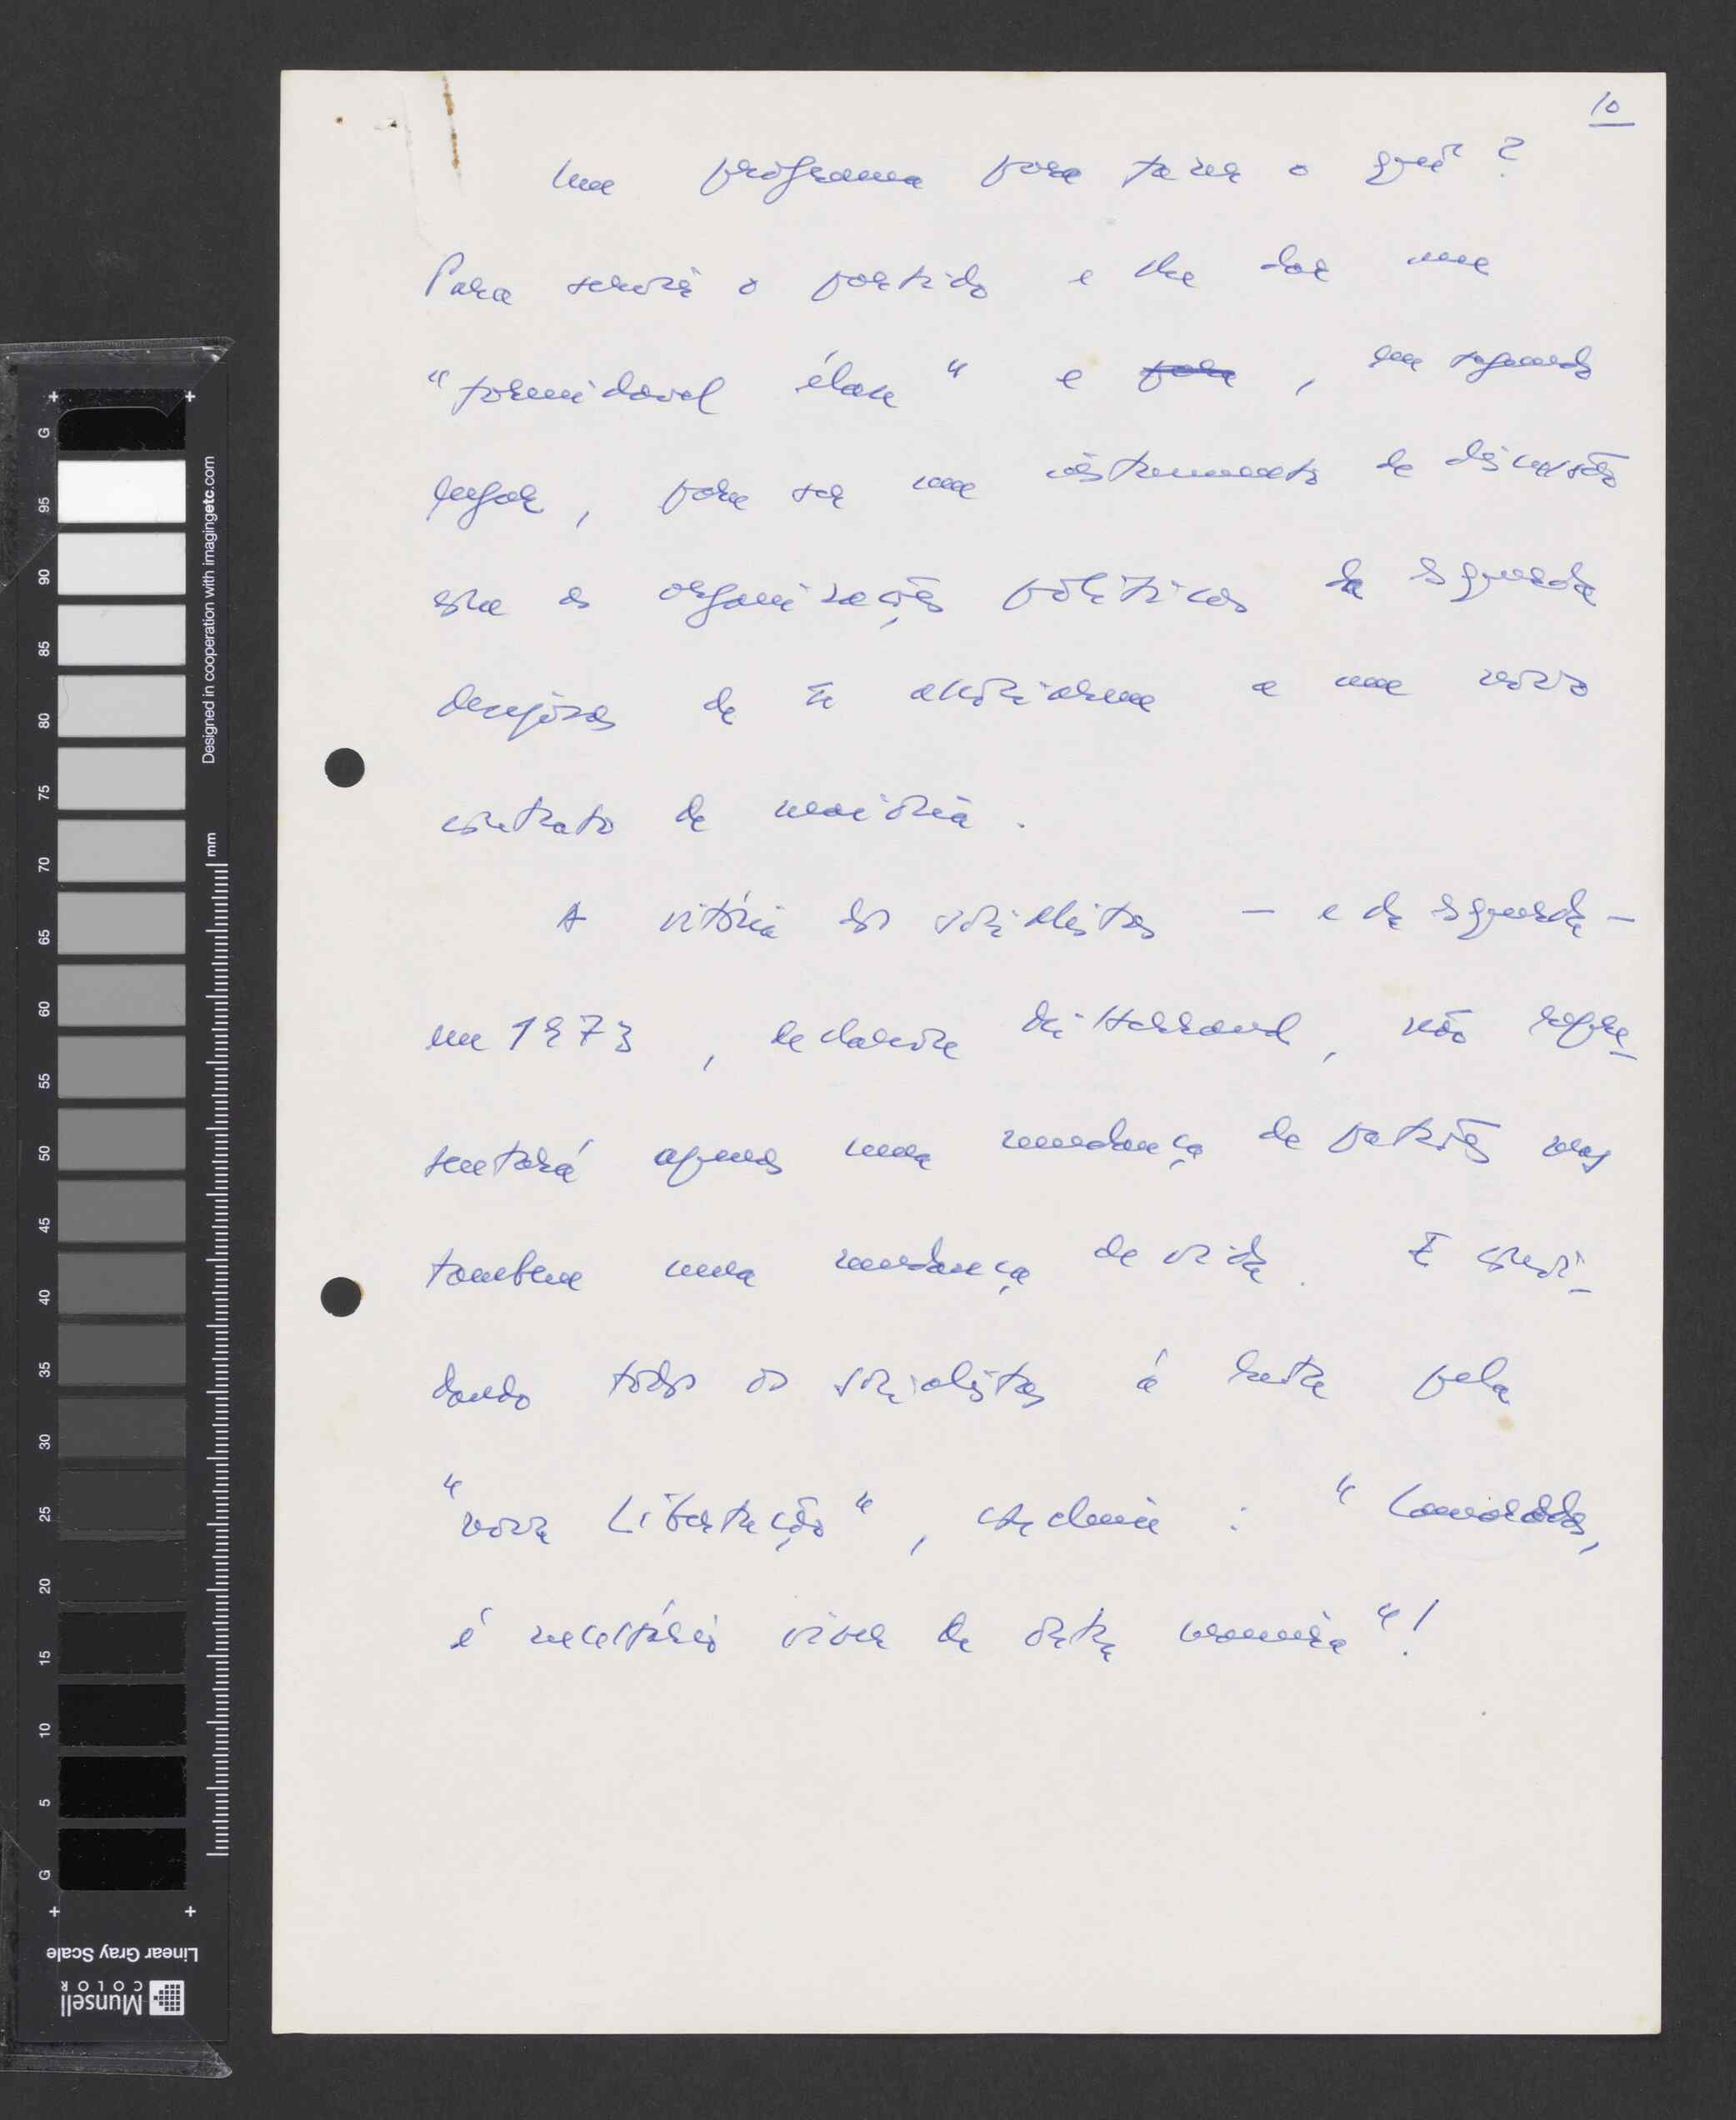 10
Um programa para fazer o quê?
Para servir o partido e lhe dar um
"formidavel élan" e para, em segundo
lugar, para ser um instrumento de discussão
com as organizações políticas da esquerda
desejosas de se associarem a um novo
contrato de maioria.
A vitória dos socialistas — e da esquerda —
em 1973, declarou Mitterrand, não repre-
sentará apenas uma mudança de patrões mas
tambem uma mudança de vida. E convi-
dando todos os socialistas á luta pela
"nova Libertação", exclamou: "Camaradas,
é necessário viver de outra maneira"!
G
95
90
85
80
75
70
65
60
55
50
45
40
35
30
25
20
15
10
5
G
Designed in cooperation with imagingetc.com
mm
Linear Gray Scale
Munsell
COLOR